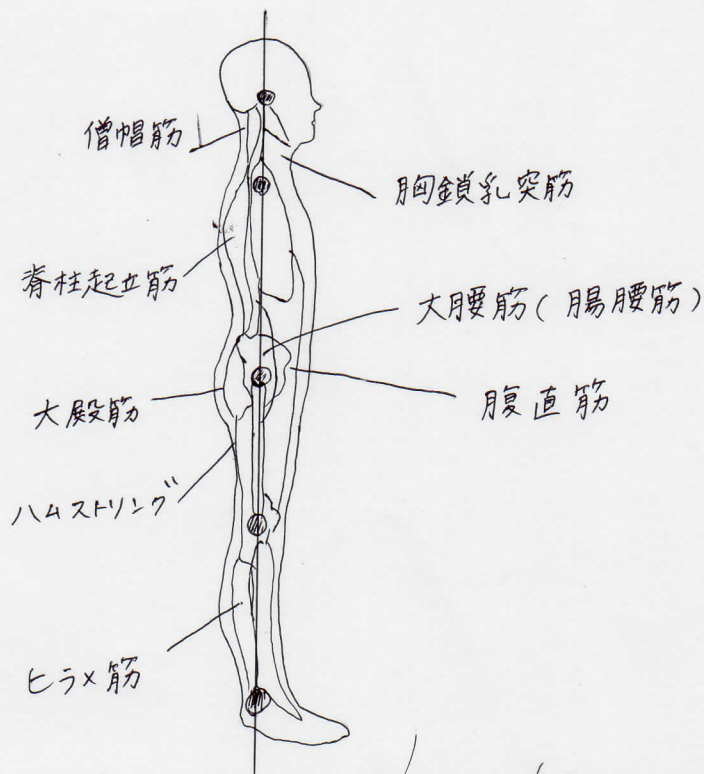 僧帽筋
胸鎖乳突筋
脊柱起立筋
大腰筋(腸腰筋)
大殿筋
腹直筋
ハムストリング
ヒラメ筋